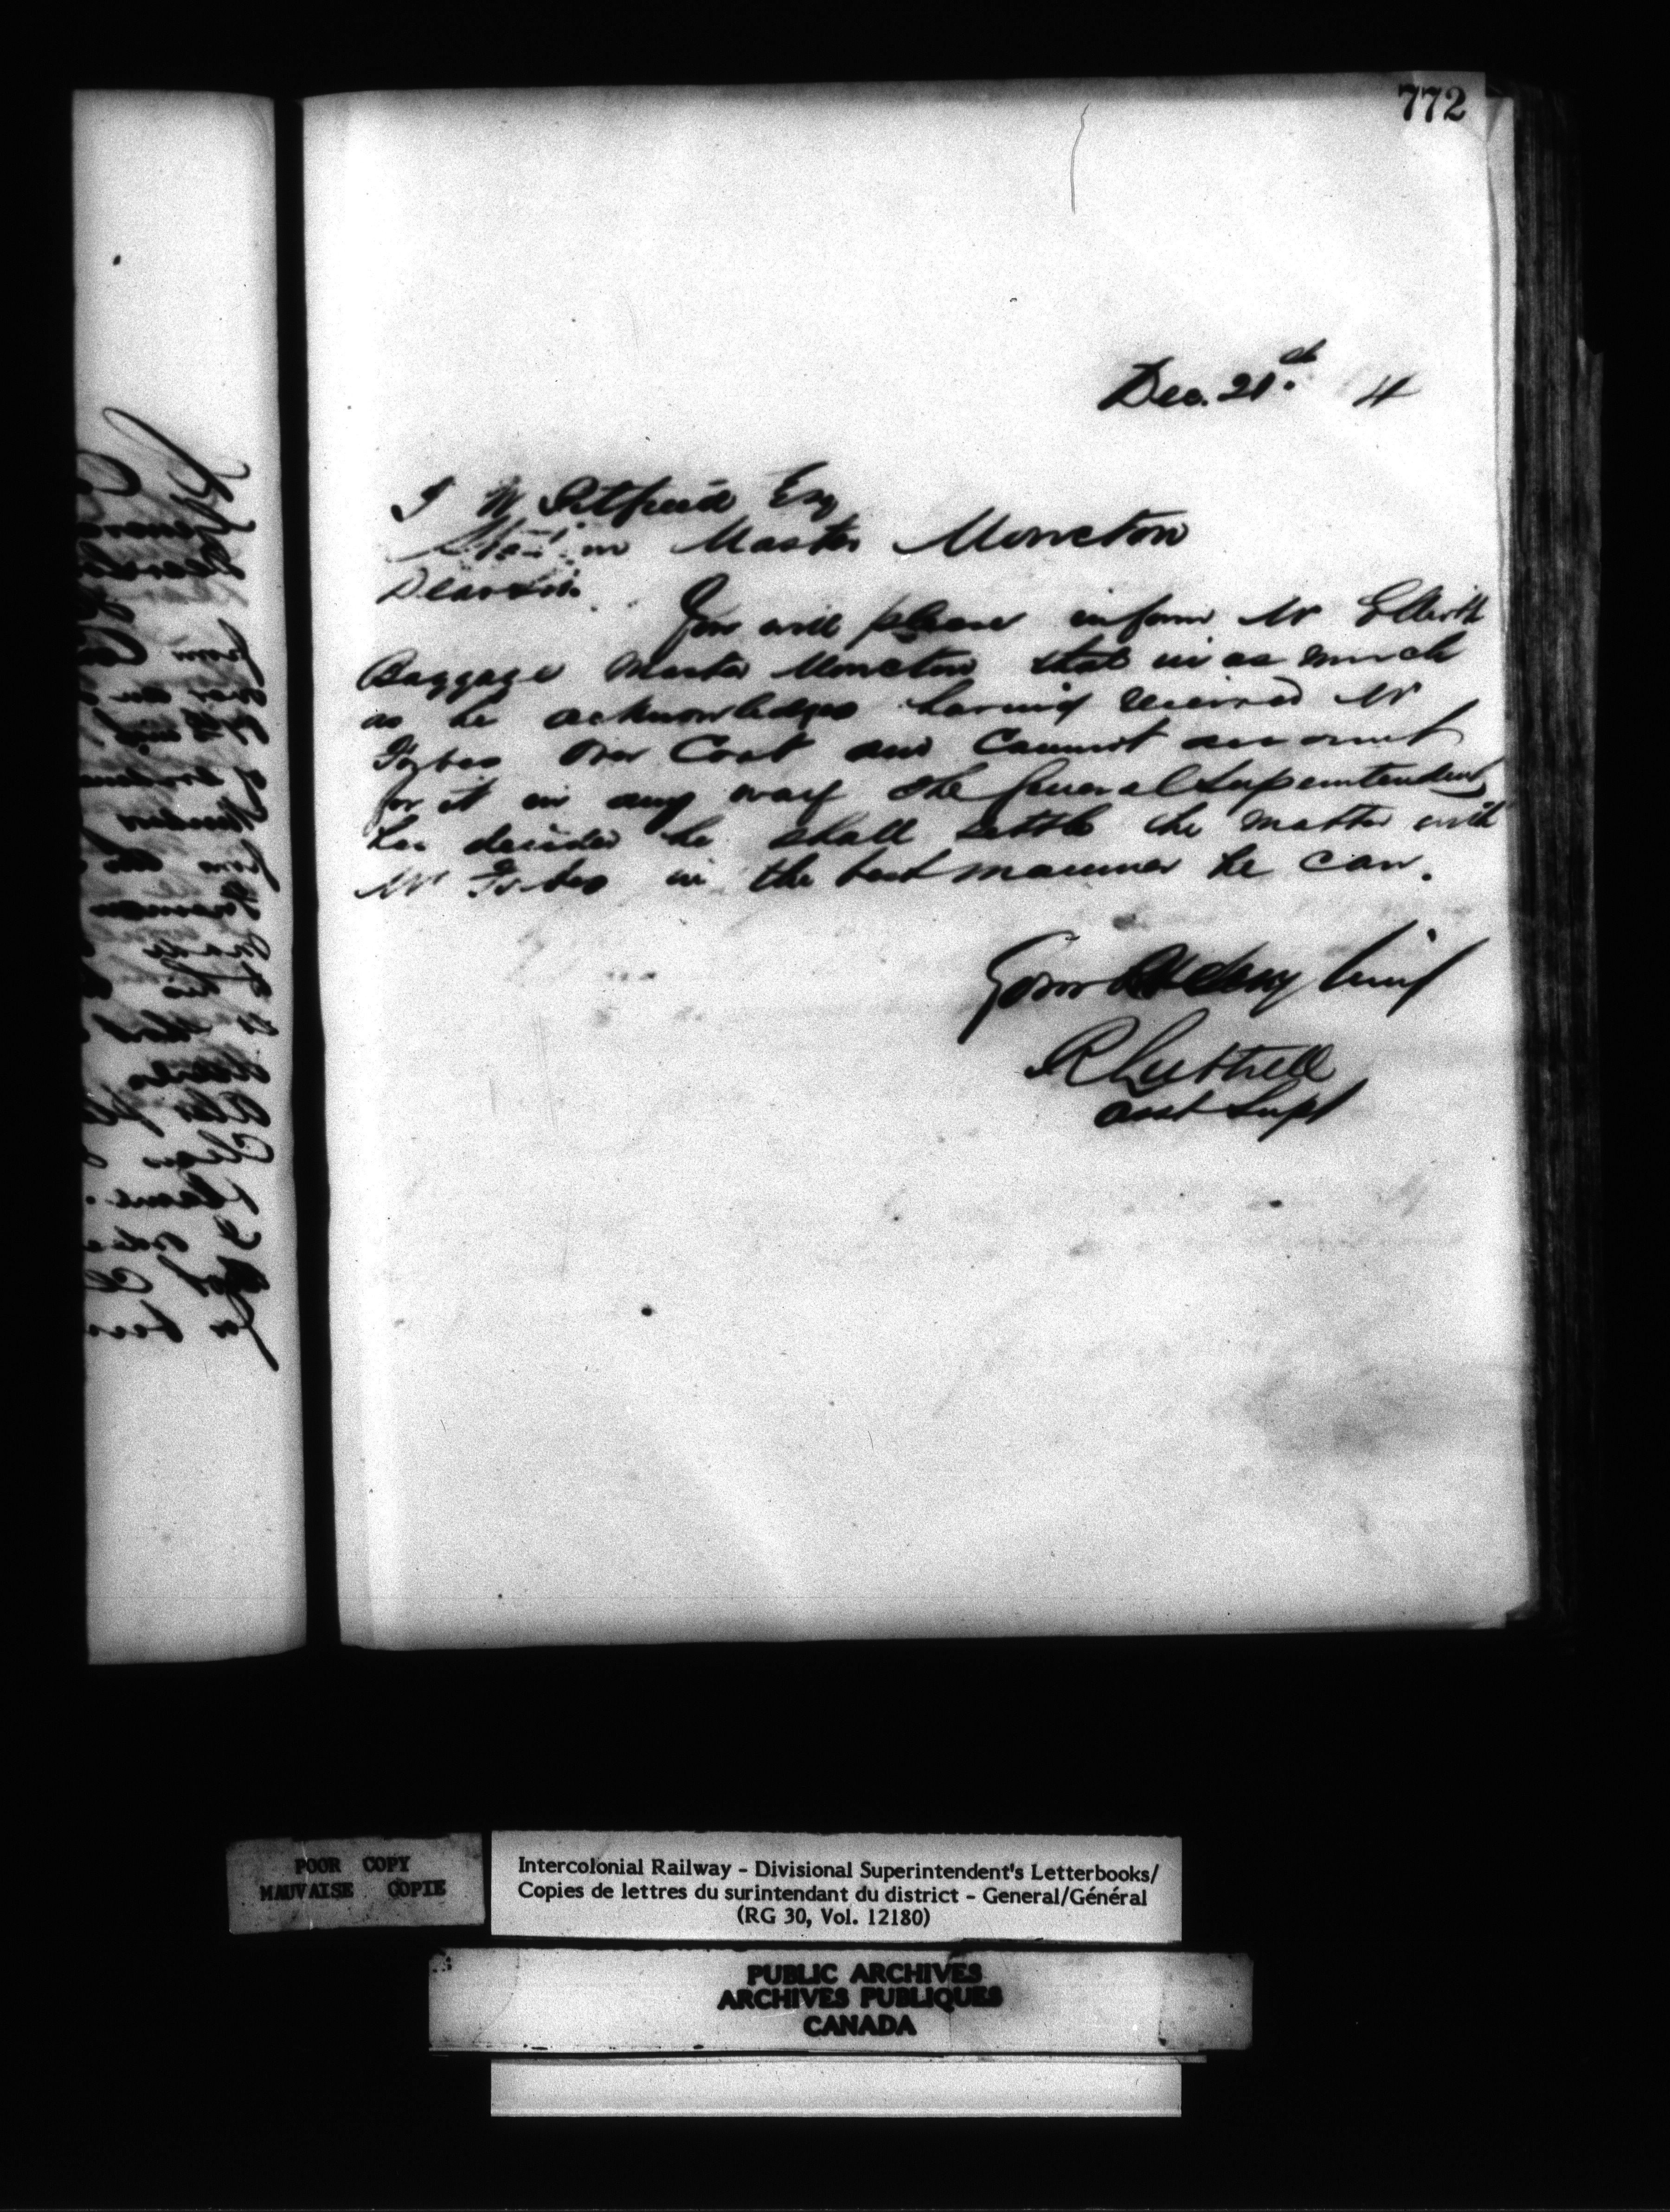 772
Dec. 21st 4
J W Esq
Station Master Moncton
Dear Sir.
You will please inform Mr Elliott
Baggage Master Moncton that in as much
as he acknowledges having received Mr
Forbes Over Coat and Cannot account
for it in any way the General Superintendent
has decided he shall settle the matter with
Mr Forbes in the best manner he can.
Yours
R Luttrell
asst Supt
POOR COPY
MAUVAISE COPIE
Intercolonial Railway - Divisional Superintendent's Letterbooks/
Copies de lettres du surintendant du district - General/Général
(RG 30, Vol. 12180)
PUBLIC ARCHIVES
ARCHIVES PUBLIQUES
CANADA